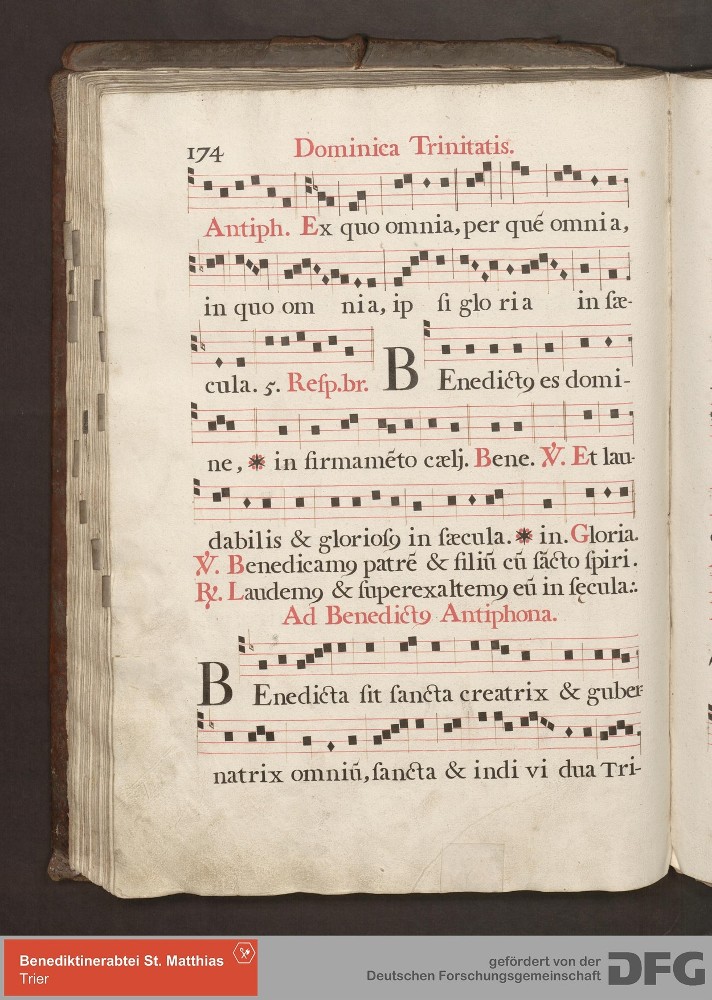 174 Dominica Trinitatis.
Antiph. Ex quo omnia, per qué omnia,
in quo om nia, ip ſi glo ria in ſæ-
cula. 5. Reſp.br. BEnedictꝯ es domi-
ne, * in firmamẽto cælj. Bene. ℣. Et lau-
dabilis & glorioſꝯ in ſæcula. * in. Gloria.
℣. Benedicamꝯ patrẽ & filiũ cũ ſãcto ſpiri.
℟. Laudemꝯ & ſuperexaltemꝯ eũ in ſęcula:.
Ad Benedictꝯ Antiphona.
BEnedicta ſit ſancta creatrix & guber-
natrix omniũ, ſancta & indi vi dua Tri-
Benediktinerabtei St. Matthias
Trier
gefördert von der
Deutschen Forschungsgemeinschaft
DFG